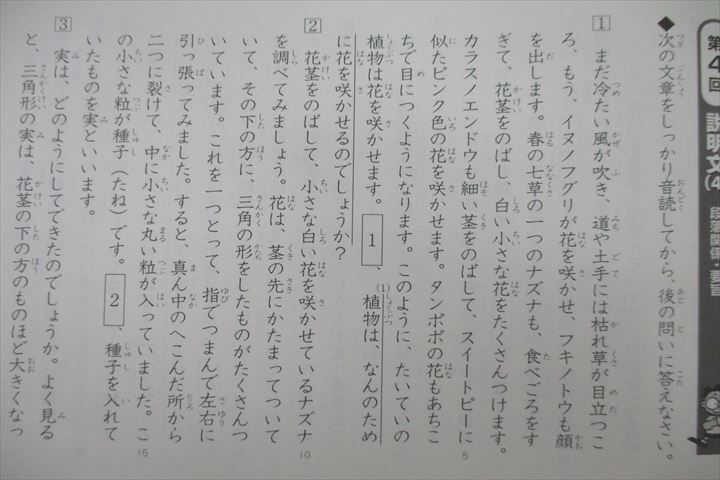 第4回 説明文(4) 段落関係・要旨
◆次の文章をしっかり音読してから、後の問いに答えなさい。
1 まだ冷たい風が吹き、道や土手には枯れ草が目立つこ
ろ、もう、イヌノフグリが花を咲かせ、フキノトウも顔
を出します。春の七草の一つのナズナも、食べごろをす
ぎて、花茎をのばし、白い小さな花をたくさんつけます。
カラスノエンドウも細い茎をのばして、スイートピーに
似たピンク色の花を咲かせます。タンポポの花もあちこ
ちで目につくようになります。このように、たいていの
植物は花を咲かせます。 1 、(1)植物は、なんのため
に花を咲かせるのでしょうか?
2 花茎をのばして、小さな白い花を咲かせているナズナ
を調べてみましょう。花は、茎の先にかたまってついて
いて、その下の方に、三角の形をしたものがたくさんつ
いています。これを一つとって、指でつまんで左右に
引っ張ってみました。すると、真ん中のへこんだ所から
二つに裂けて、中に小さな丸い粒が入っていました。こ
の小さな粒が種子(たね)です。 2 、種子を入れて
いたものを実といいます。
3 実は、どのようにしてできたのでしょうか。よく見る
と、三角形の実は、花茎の下の方のものほど大きくなっ
5
10
15